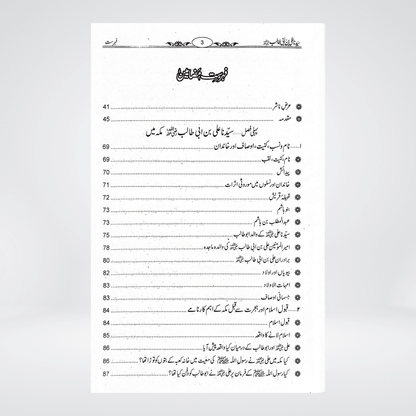 سیدنا علی بن ابی طالب رضی اللہ عنہ 3 فہرست
فہرست مضامین
عرضِ ناشر 41
مقدمہ 45
پہلی فصل ... سیّدنا علی بن ابی طالب رضی اللہ عنہ مکہ میں
۱۔ نام و نسب، کنیت، اوصاف اور خاندان 69
نام، کنیت، لقب 69
پیدائش 70
خاندان اور نسلوں میں موروثی اثرات 71
قبیلۂ قریش 72
بنو ہاشم 73
عبدالمطلب بن ہاشم 73
سیّدنا علی رضی اللہ عنہ کے والد ابوطالب 75
امیر المومنین علی بن ابی طالب رضی اللہ عنہ کی والدہ ماجدہ 78
برادرانِ علی بن ابی طالب رضی اللہ عنہ 80
بیویاں اور اولاد 82
امہات الاولاد 83
جسمانی اوصاف 83
۲۔ قبول اسلام اور ہجرت سے قبل مکہ کے اہم کارنامے 84
قبول اسلام 84
اسلام لانے کا واقعہ 84
علی رضی اللہ عنہ اور ابوطالب کے درمیان کیا واقعہ پیش آیا 85
کیا مکہ میں علی رضی اللہ عنہ نے رسول اللہ ﷺ کی معیت میں خانہ کعبہ کے بتوں کو توڑا تھا؟ 86
کیا رسول اللہ ﷺ کے فرمان پر علی رضی اللہ عنہ نے ابوطالب کو دفن کیا تھا؟ 87